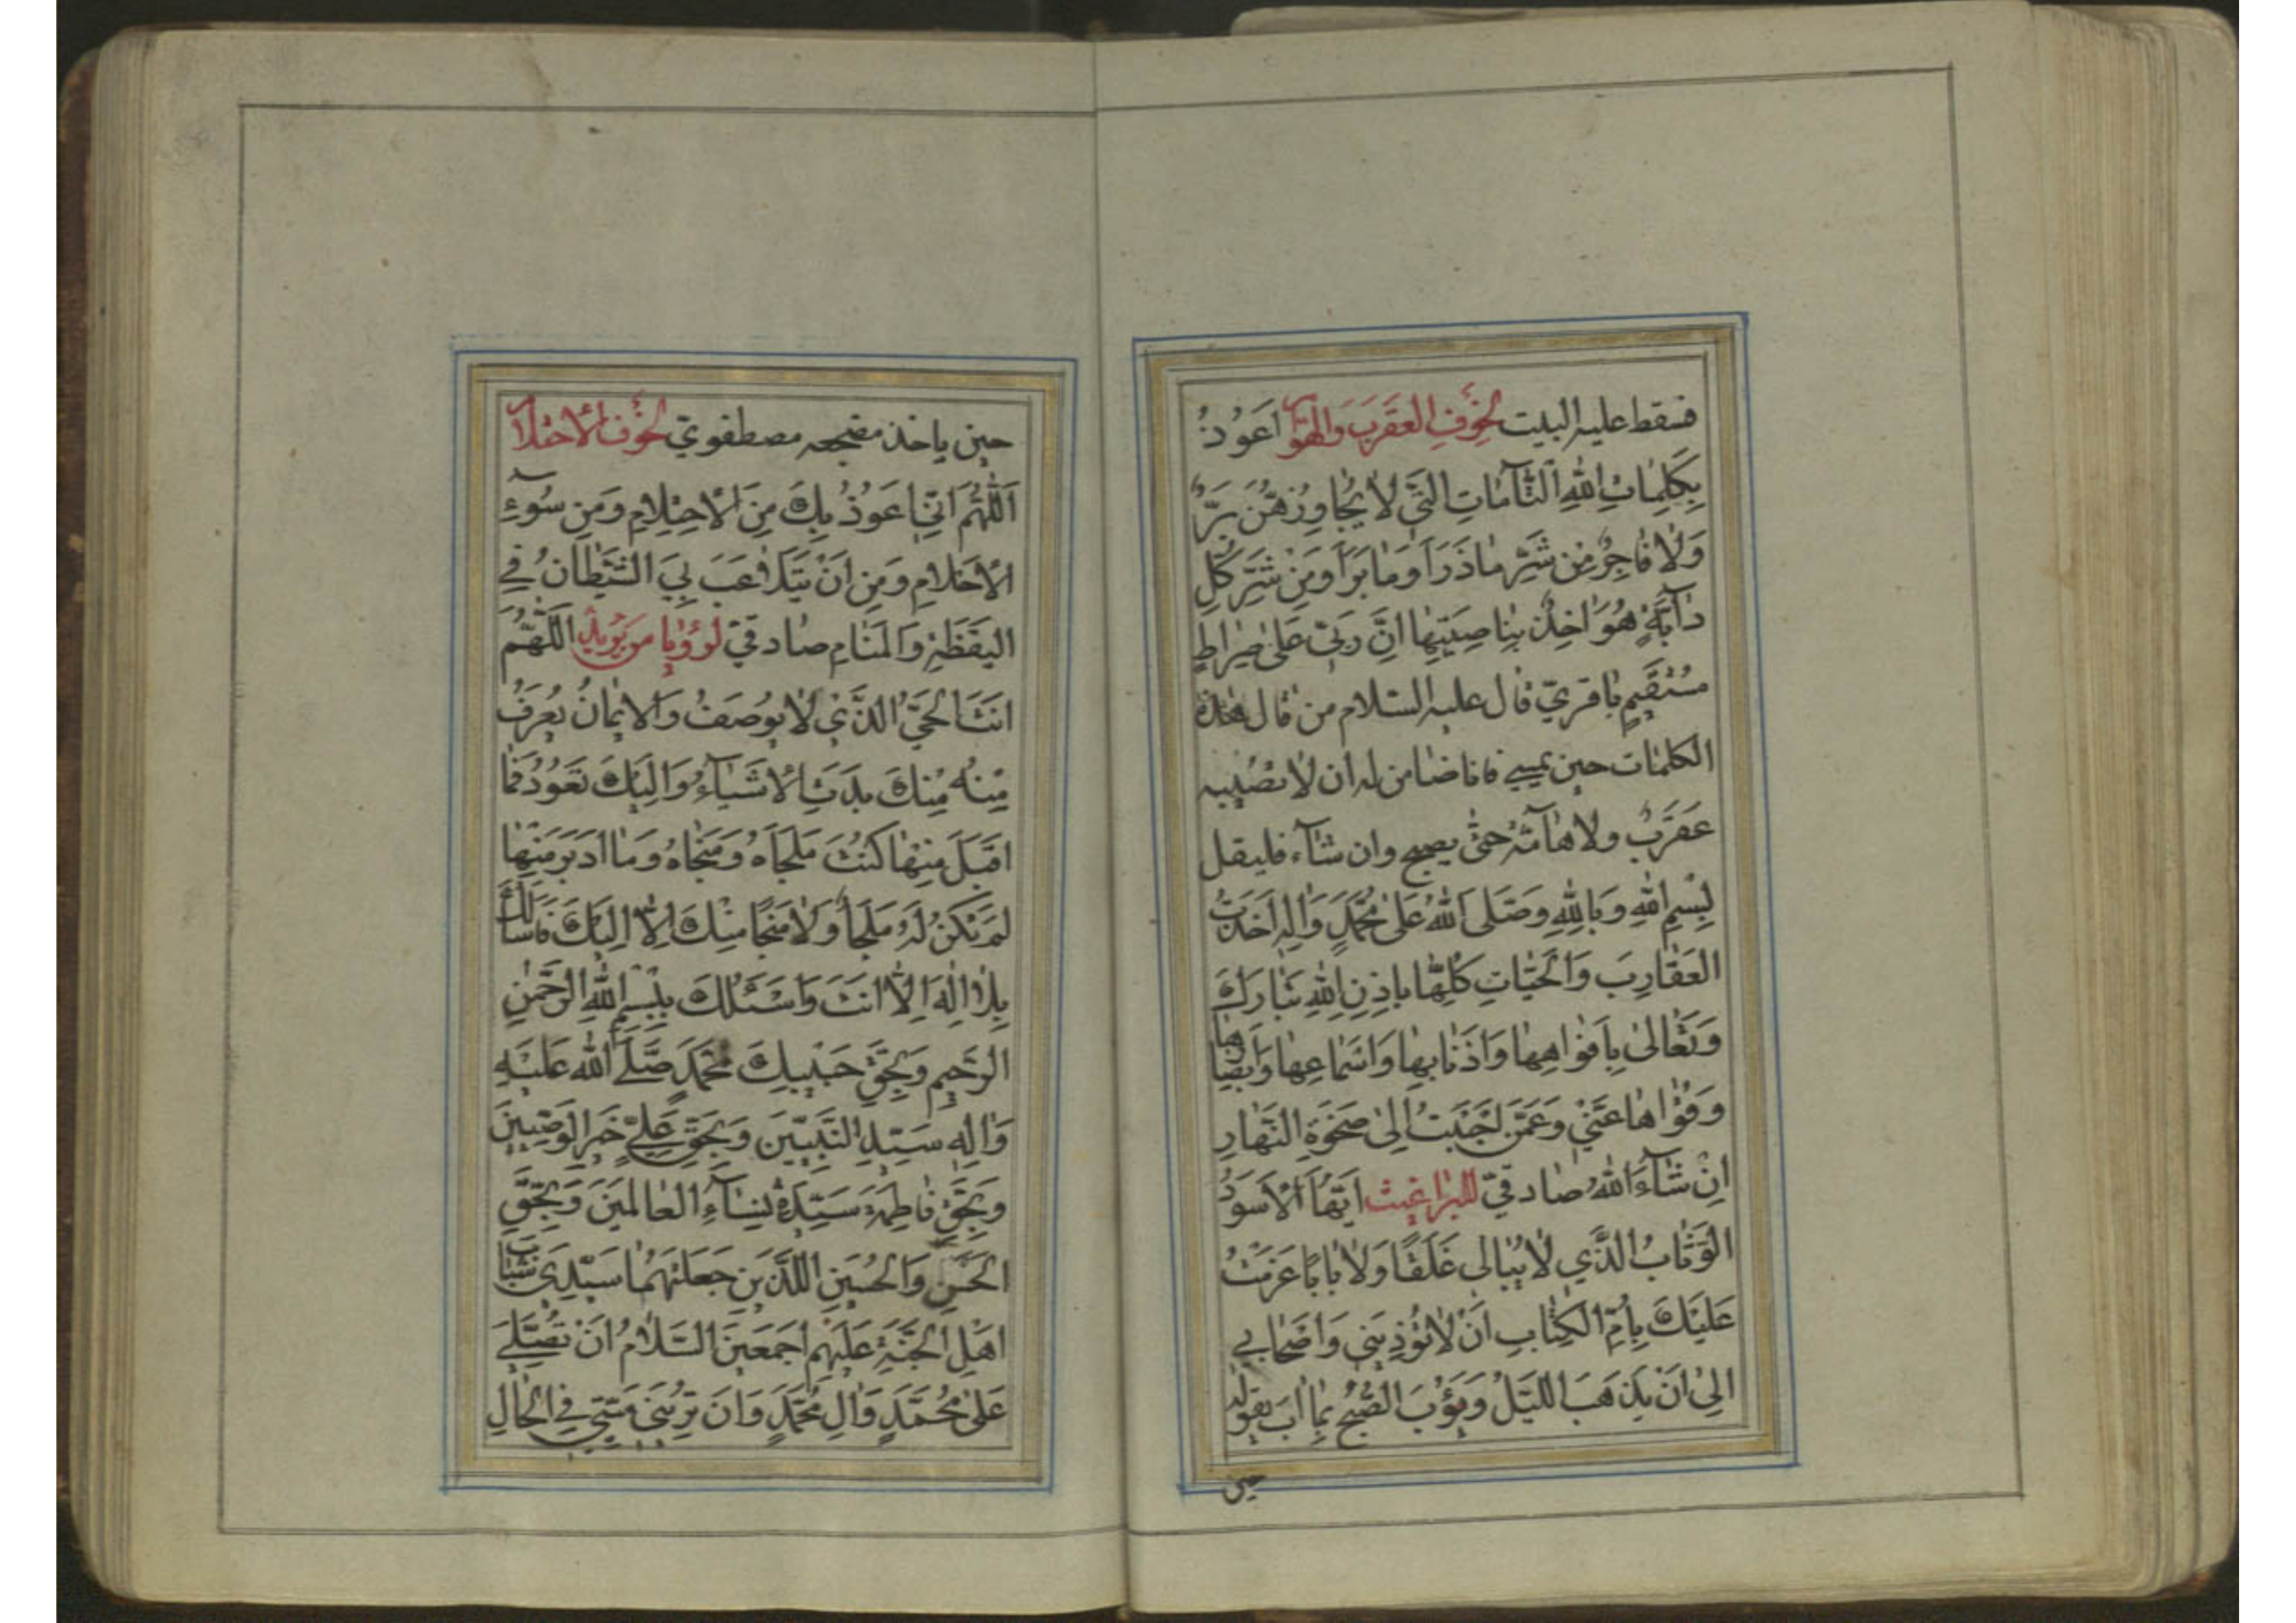 فسقط عليه البيت لِخَوْفِ العَقْرَبِ وَالهَوَامِّ اَعُوذُ
بِكَلِمَاتِ اللّٰهِ التَّآمَّاتِ الَّتِي لَا يُجَاوِزُهُنَّ بَرٌّ
وَلَا فَاجِرٌ مِنْ شَرِّ مَا ذَرَأَ وَمَا بَرَأَ وَمِنْ شَرِّ كُلِّ
دَآبَّةٍ هُوَ اٰخِذٌ بِنَاصِيَتِهَا اِنَّ رَبِّي عَلىٰ صِرَاطٍ
مُسْتَقِيمٍ باقريّ قال عليه السلام من قال هذه
الكلمات حين يمسي فانا ضامن له ان لا تصيبه
عَقْرَبٌ ولا هَآمَّةٌ حتّى يصبح وان شآء فليقل
بِسْمِ اللّٰهِ وَبِاللّٰهِ وَصَلَّى اللّٰهُ عَلىٰ مُحَمَّدٍ وَاٰلِهِ اَخَذْتُ
العَقَارِبَ وَالْحَيَّاتِ كُلَّهَا بِاِذْنِ اللّٰهِ تَبَارَكَ
وَتَعَالىٰ بِاَفْوَاهِهَا وَاَذْنَابِهَا وَاَسْمَاعِهَا وَاَبْصَارِهَا
وَقُوَاهَا عَنِّي وَعَمَّنْ اَحْبَبْتُ اِلىٰ ضَحْوَةِ النَّهَارِ
اِنْ شَآءَ اللّٰهُ صادقيّ للبراغيث اَيُّهَا الْاَسْوَدُ
الوَثَّابُ الَّذِي لَا يُبَالِي غَلَقًا وَلَا بَابًا عَزَمْتُ
عَلَيْكَ بِاُمِّ الْكِتَابِ اَنْ لَا تُؤْذِيَنِي وَاَصْحَابِي
اِلىٰ اَنْ يَذْهَبَ اللَّيْلُ وَيَؤُبَ الصُّبْحُ بِمَا اٰبَ يقوله
حين
حين ياخذ مضجعه مصطفويّ لِخَوْفِ الْاحْتِلَامِ
اَللّٰهُمَّ اِنِّي اَعُوذُ بِكَ مِنَ الْاِحْتِلَامِ وَمِنْ سُوءِ
الْاَحْلَامِ وَمِنْ اَنْ يَتَلَاعَبَ بِيَ الشَّيْطَانُ فِي
اليَقَظَةِ وَالمَنَامِ صادقيّ لرؤيا من يريد اَللّٰهُمَّ
اَنْتَ الْحَيُّ الَّذِي لَا يُوصَفُ وَالْاِيمَانُ يُعْرَفُ
مِنْهُ مِنْكَ بَدَتِ الْاَشْيَآءُ وَاِلَيْكَ تَعُودُ فَمَا
اَقْبَلَ مِنْهَا كُنْتَ مَلْجَاَهُ وَمَنْجَاهُ وَمَا اَدْبَرَ مِنْهَا
لَمْ يَكُنْ لَهُ مَلْجَأٌ وَلَا مَنْجَا مِنْكَ اِلَّا اِلَيْكَ فَاَسْاَلُكَ
بِلَا اِلٰهَ اِلَّا اَنْتَ وَاَسْئَلُكَ بِبِسْمِ اللّٰهِ الرَّحْمٰنِ
الرَّحِيمِ وَبِحَقِّ حَبِيبِكَ مُحَمَّدٍ صَلَّى اللّٰه عَلَيْهِ
وَاٰلِهِ سَيِّدِ النَّبِيِّينَ وَبِحَقِّ عَلِيٍّ خَيْرِ الوَصِيِّينَ
وَبِحَقِّ فَاطِمَةَ سَيِّدَةِ نِسَآءِ العَالَمِينَ وَبِحَقِّ
الحَسَنِ وَالحُسَيْنِ اللَّذَيْنِ جَعَلْتَهُمَا سَيِّدَيْ شَبَابِ
اَهْلِ الْجَنَّةِ عَلَيْهِمْ اَجْمَعِينَ السَّلَامُ اَنْ تُصَلِّيَ
عَلىٰ مُحَمَّدٍ وَاٰلِ مُحَمَّدٍ وَاَنْ تُرِيَنِي مَيِّتِي فِي الْحَالِ